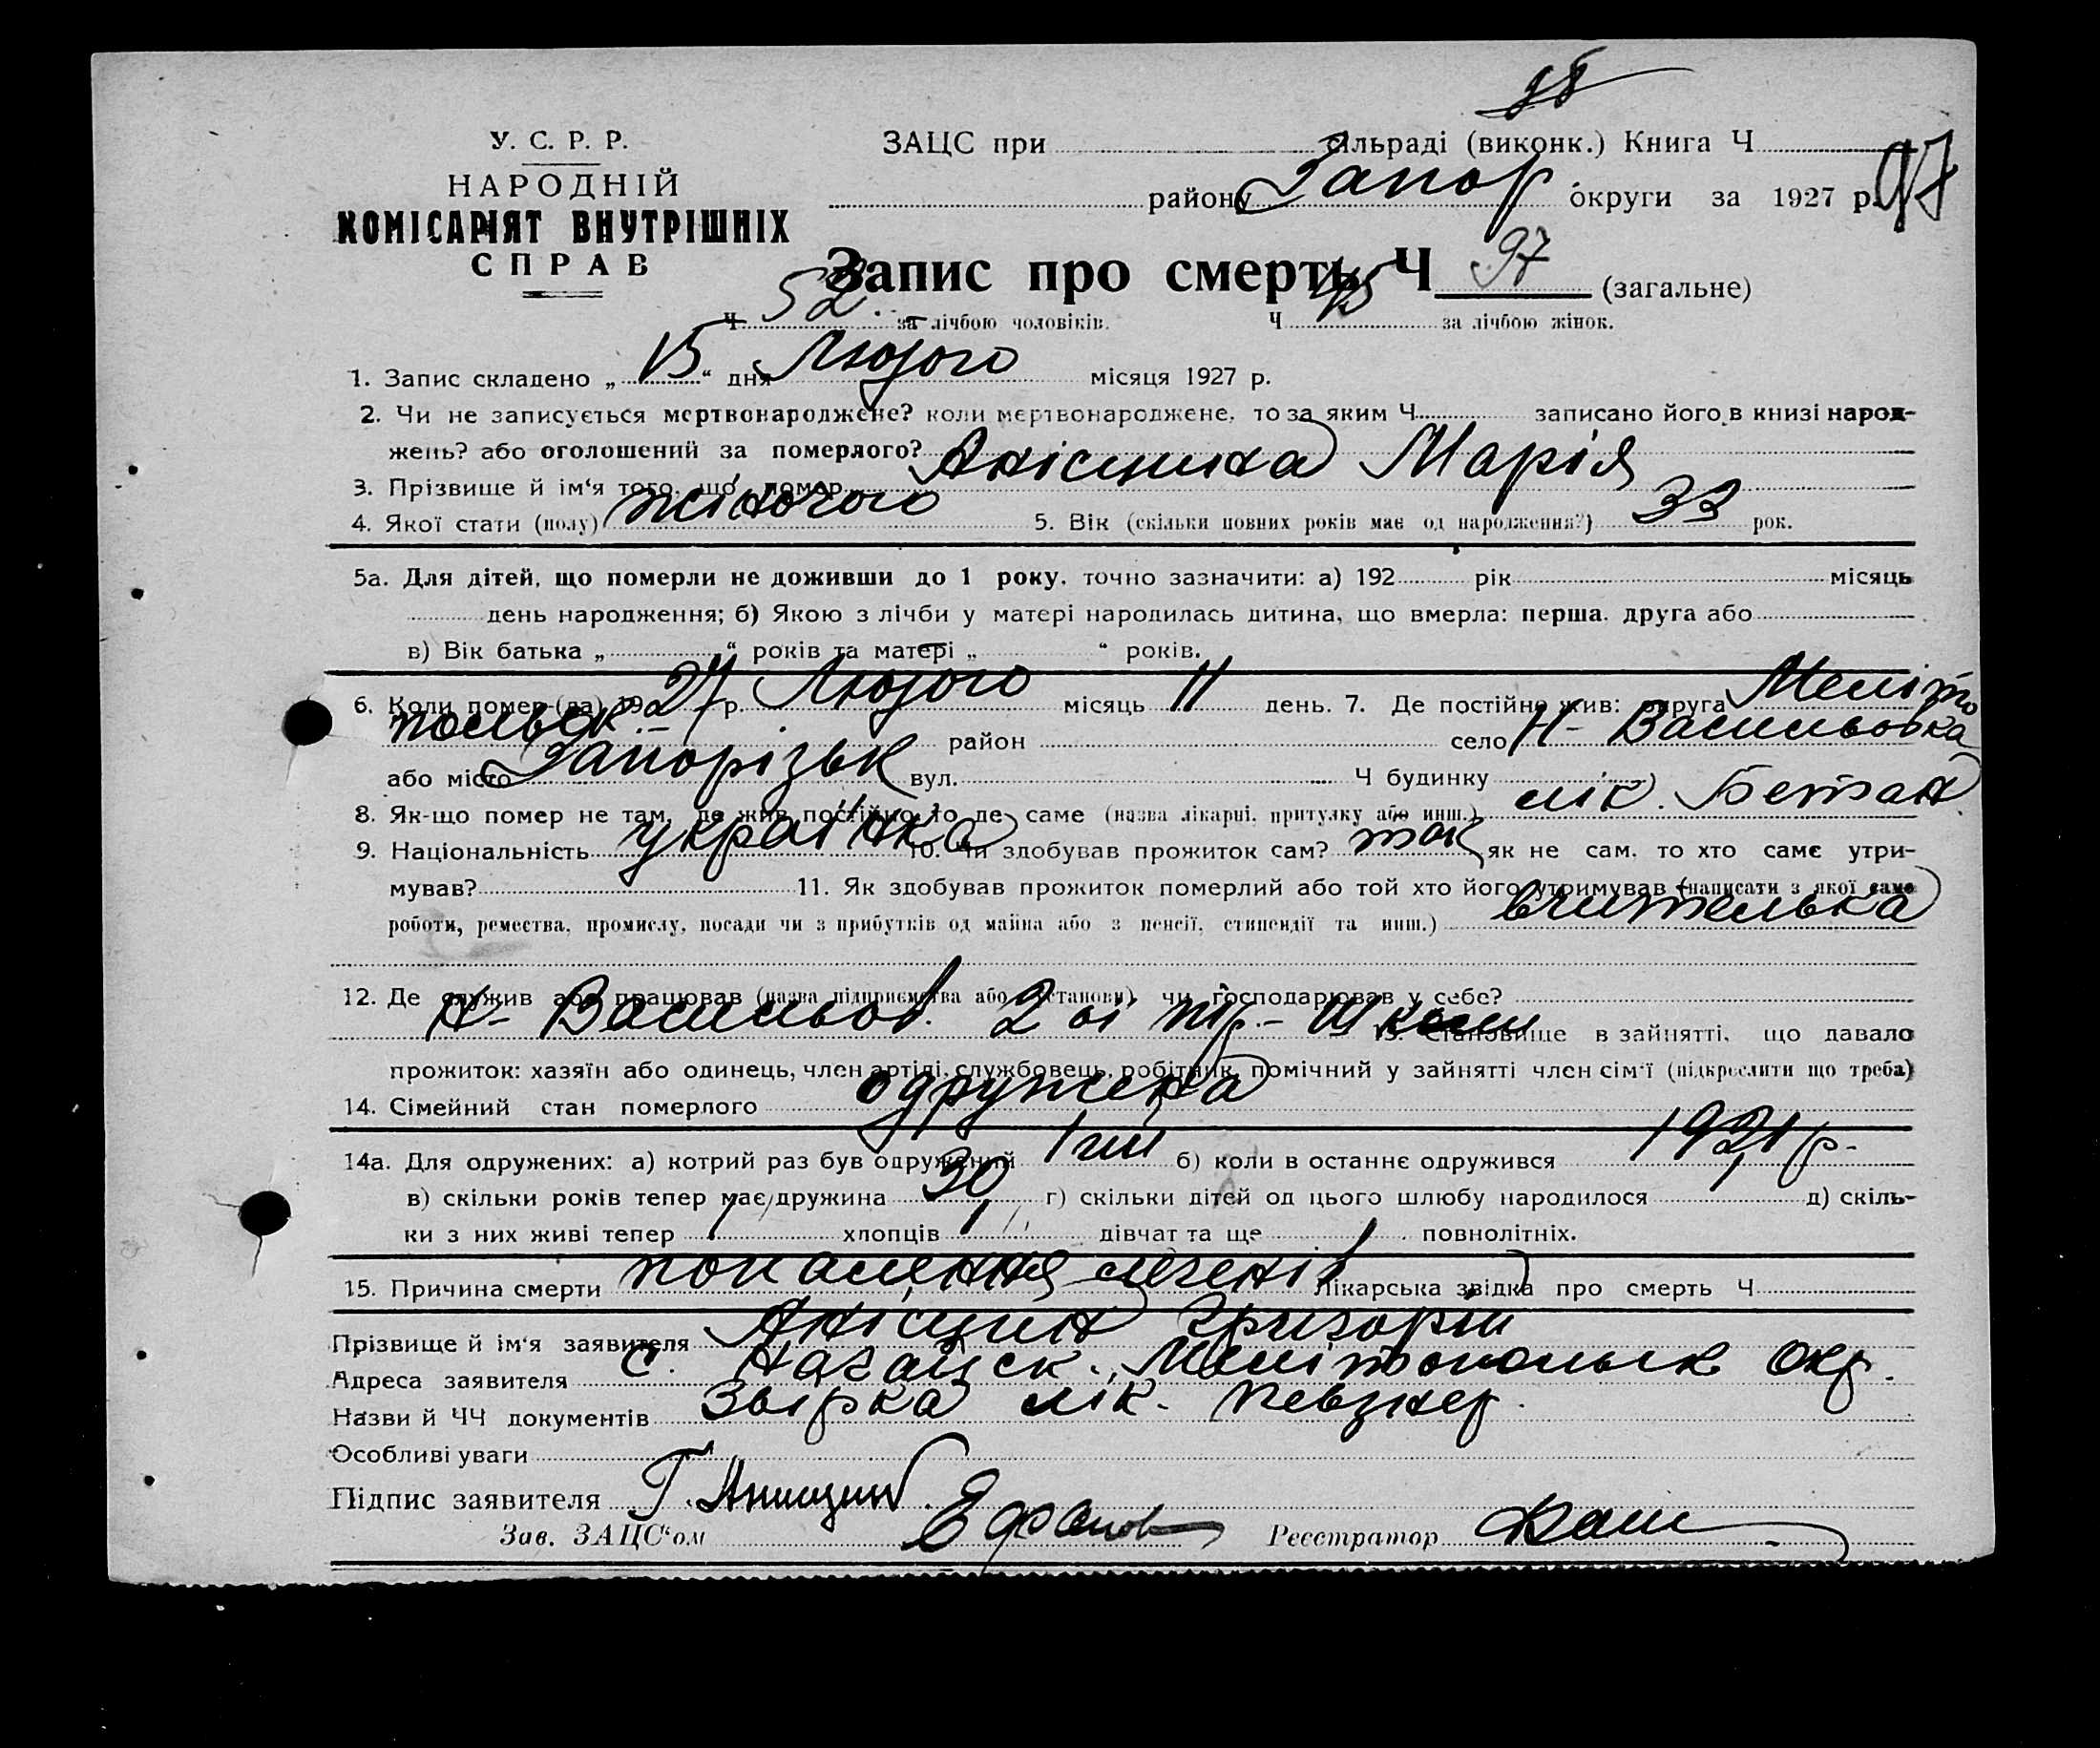 98
У. С. Р. Р.
НАРОДНІЙ
КОМІСАРІЯТ ВНУТРІШНІХ
СПРАВ
ЗАЦС при сільраді (виконк.) Книга Ч
району Запор округи за 1927 р. 97
Запис про смерть Ч 97 (загальне)
Ч 52 за лічбою чоловіків. Ч 45 за лічбою жінок.
1. Запис складено „ 15 “ дня Лютого місяця 1927 р.
2. Чи не записується мертвонароджене? коли мертвонароджене, то за яким Ч. записано його в книзі народ-
жень? або оголошений за померлого?
3. Прізвище й ім‘я того, що помер Анісщина Марія
4. Якої стати (полу) жіночого 5. Вік (скільки повних років має од народження?) 33 рок.
5а. Для дітей, що померли не доживши до 1 року, точно зазначити: а) 192 рік місяць
день народження; б) Якою з лічби у матері народилась дитина, що вмерла: перша. друга або
в) Вік батька „ “ років та матері „ “ років.
6. Коли помер-(ла) 192 7 р. Лютого місяць 11 день. 7. Де постійно жив: округа Меліто
польськ район село Н- Васильовка
або місто Запорізьк вул. Ч будинку
8. Як-що помер не там, де жив постійно, то де саме (назва лікарні, притулку або инш.) лік. Бетан
9. Національність українка 10. Чи здобував прожиток сам? так як не сам, то хто саме утри-
мував? 11. Як здобував прожиток померлий або той хто його утримував (написати з якої саме
роботи, ремества, промислу, посади чи з прибутків од майна або з пенсії, стипендії та инш.) вчителька
12. Де служив або працював (назва підприємства або установи) чи господарював у себе?
Н- Васильов. 2 ої тр.- Школи 13. Становище в зайнятті, що давало
прожиток: хазяїн або одинець, член артілі, службовець, робітник, помічний у зайнятті член сім‘ї (підкреслити що треба)
14. Сімейний стан померлого одружена
14а. Для одружених: а) котрий раз був одружений 1 ший б) коли в останнє одружився 1921 р.
в) скільки років тепер має дружина 30 г) скільки дітей од цього шлюбу народилося д) скіль-
ки з них живі тепер хлопців 1 дівчат та ще повнолітніх.
15. Причина смерти Лікарська звідка про смерть Ч
Прізвище й ім‘я заявителя Анісщин Григорій
Адреса заявителя с. Нагайськ. Мелітопольськ Окр.
Назви й ЧЧ документів лік. Певзнер.
Особливі уваги
Підпис заявителя Г. Анищин
Зав. ЗАЦС‘ом Реєстратор